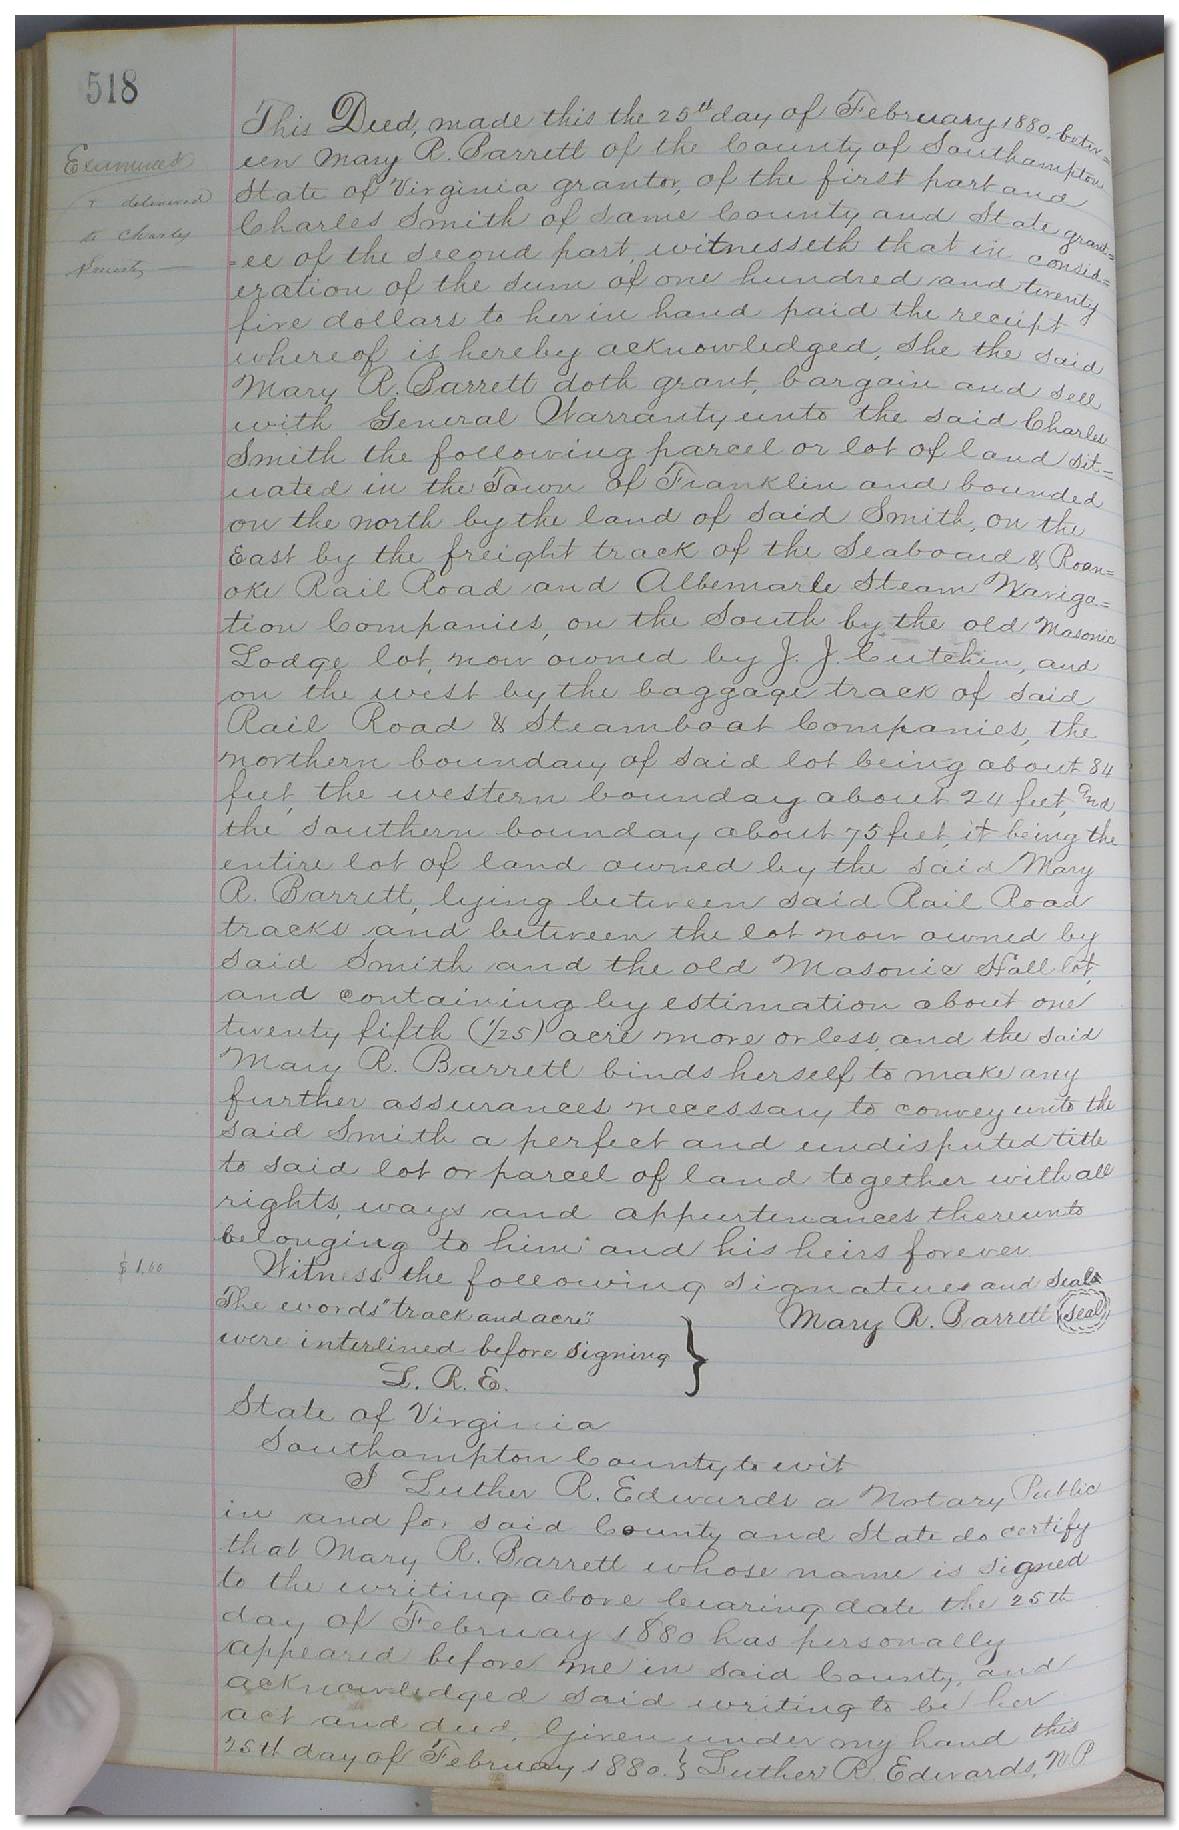 518
Examined
& delivered
to Charles
Smith
This Deed, made this the 25th day of February 1880, betw=
een Mary R. Barrett of the County of Southampton
State of Virginia grantor, of the first part and
Charles Smith of same County and State grant=
=ee of the second part, witnesseth that in consid=
eration of the sum of one hundred and twenty
five dollars to her in hand paid the receipt
whereof is hereby acknowledged, she the said
Mary R. Barrett doth grant, bargain and sell
with General Warranty unto the said Charles
Smith the following parcel or lot of land sit=
uated in the Town of Franklin and bounded
on the north by the land of said Smith, on the
East by the freight track of the Seaboard & Roan=
oke Rail Road and Albemarle Steam Naviga=
tion Companies, on the South by the old Masonic
Lodge lot, now owned by J. J. Cutchin, and
on the west by the baggage track of said
Rail Road & Steamboat Companies, the
northern boundary of said lot being about 84
feet, the western boundary about 24 feet, and
the southern boundary about 75 feet, it being the
entire lot of land owned by the said Mary
R. Barrett, lying between said Rail Road
tracks and between the lot now owned by
said Smith and the old Masonic Hall lot,
and containing by estimation about one
twenty fifth (1/25) acre more or less, and the said
Mary R. Barrett binds herself to make any
further assurances necessary to convey unto the
said Smith a perfect and undisputed title
to said lot or parcel of land together with all
rights, ways and appurtenances thereunto
belonging to him and his heirs forever
$1.60
Witness the following signatures and seals
The words "track and acre"
Mary R. Barrett (Seal)
were interlined before signing
L. R. E.
State of Virginia
Southampton County to wit
I Luther R. Edwards a Notary Public
in and for said County and State do certify
that Mary R. Barrett whose name is signed
to the writing above bearing date the 25th
day of February 1880 has personally
appeared before me in said County, and
acknowledged said writing to be her
act and deed. Given under my hand this
25th day of February 1880. } Luther R. Edwards, N.P.